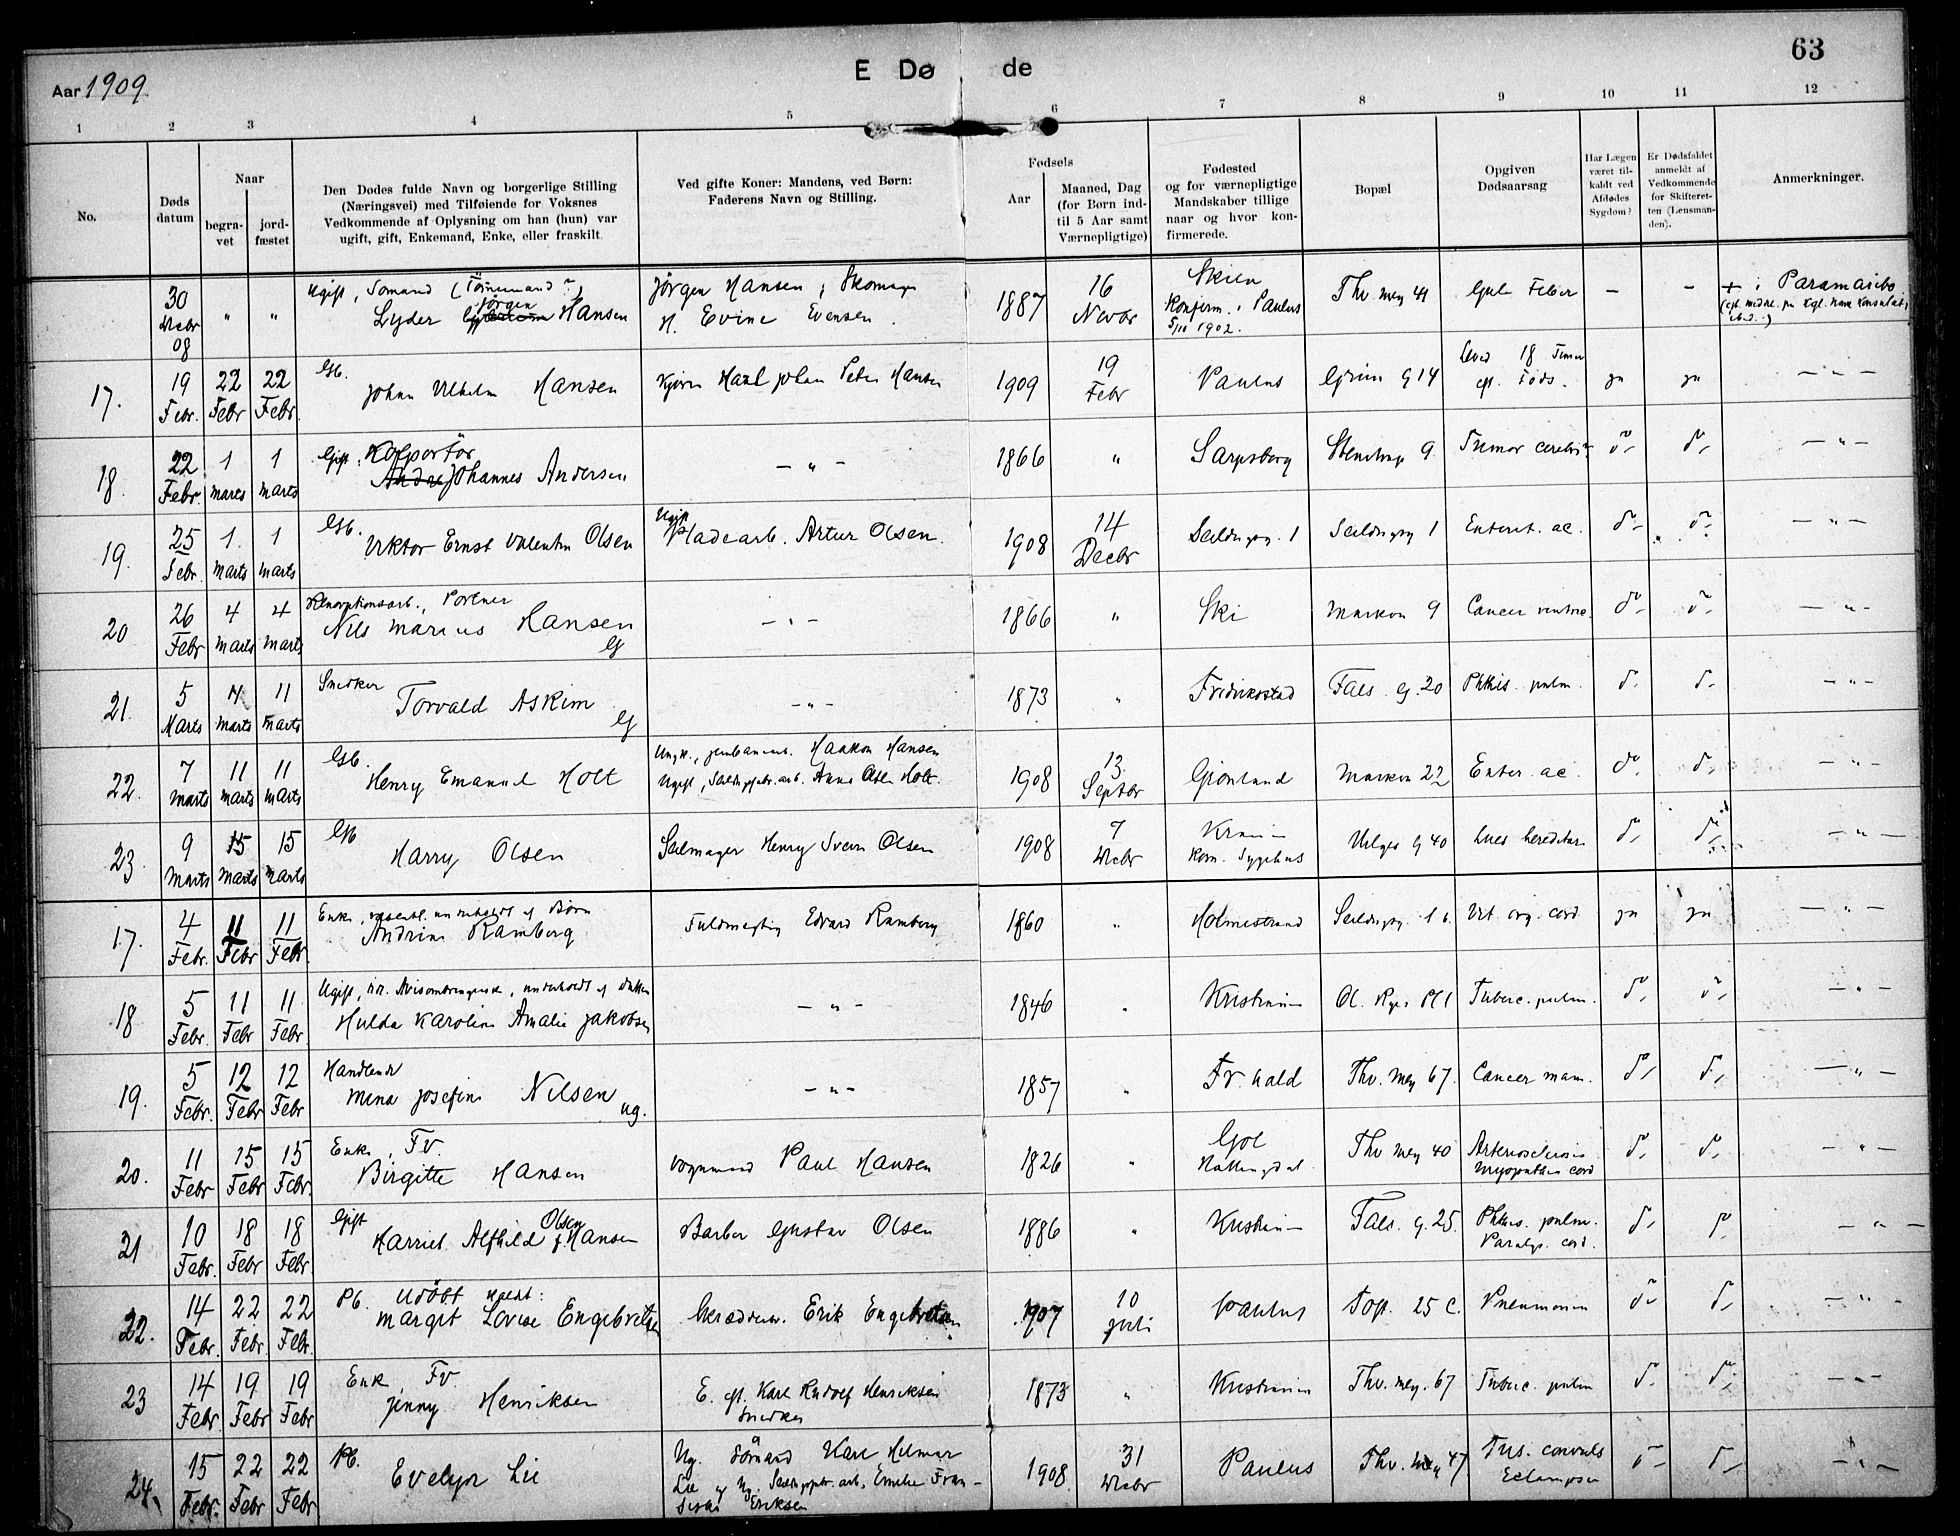 Aar 1909.
E Dø de
63
1 2 3 4 5 6 7 8 9 10 11 12
No.
Døds datum
Naar
begra-vet
jord-fæstet
Den Dødes fulde Navn og borgerlige Stilling
(Næringsvei) med Tilføiende for Voksnes
Vedkommende af Oplysning om han (hun) var
ugift, gift, Enkemand, Enke, eller fraskilt.
Ved gifte Koner: Mandens, ved Børn:
Faderens Navn og Stilling.
Fødsels
Aar
Maaned, Dag
(for Børn ind-
til 5 Aar samt
Værnepligtige)
Fødested
og for værnepligtige
Mandskaber tillige
naar og hvor kon-
firmerede.
Bopæl
Opgiven
Dødsaarsag
Har Lægen
været til-
kaldt ved
Afdødes
Sygdom?
Er Dødsfaldet
anmeldt af
Vedkommende
for Skifteret-
ten (Lensman-
den).
Anmerkninger.
30 Decbr 08 " " Ugift, Sømand
Lyder Jörgen Hansen
Jörgen Hansen, Skomager
H. Evine Evensen.
1887 16 Novbr Skien
Konferm. i Paulus 5/10 1902.
Thv. mey 41 Gul Feber - - + i Paramaribo
17. 19 Febr. 22 Febr 22 Febr. Gb. Johan Vilhelm Hansen Kjører Karl Johan Peter Hansen 1909 19 Febr Paulus Grün G 14 Leved 18 Timer eft. Føds. ja ja - " -
18. 22 Febr. 1 marts 1 marts Gift. Kolportör
Johannes Andersen - " - 1866 " Sarpsborg Stenstrup 9 Tumor cerebri do do - " -
19. 25 Febr. 1 Marts 1 marts Gb. Viktor Ernst Valentin Olsen Ugift Pladearb. Artur Olsen. 1908 14 Decbr Seildugsg. 1 Seildugsg 1 Enterit. ac. do do - " -
20 26 Febr 4 marts 4 marts Renovationsarb., Portner
Nils Marius Hansen G - " - 1866 " Ski Markvn 9 Cancer ventric. do do - " -
21. 5 Marts 11 marts 11 marts Snedker
Torvald Askim G - " - 1873 " Fredrikstad Fals. G. 20 Phthis. pulm. do do - " -
22. 7 marts 11 marts 11 marts Gb. Henry Emanuel Holt Ungk., jernbanearb. Haakon Hansen
Ugift, Seildugsfabr.arb. Anna Olsen Holt. 1908 13 Septbr Grønland Markvn 22 Enter. ac. do do - " -
23. 9 Marts 15 Marts 15 marts Gb Harry Olsen Seilmager Henry Svein Olsen 1908 7 Decbr Kra
Kom. Sygehus Helges G 40 Lues hereditar do do - " -
17. 4 Febr. 11 Febr 11 Febr. Enke, væsentl. underholdt af Børn
Andrine Ramberg Fuldmægtig Edvard Ramberg 1860 " Holmestrand Seildugsg. 1 Vit. org. cord ja ja - " -
18 5 Febr. 11 Febr 11 Febr Ugift, Avisombringerske, underholdt af
Hulda Karoline Amalie Jakobsen - " - 1846 " Kristiania Ol. Ryes Pl 1 Tuberc. pulm. do do - " -
19. 5 Febr. 12 Febr 12 Febr Handlende
Mina Josefine Nilsen ug. - " - 1857 " Fr. hald Thv. mey 67. Cancer mam. do do - " -
20. 11 Febr 15 Febr 15 Febr. Enke, Fv.
Birgitte Hansen Vognmand Paul Hansen 1826 " Gol
Hallingdal Thv mey 40 Arteriosclerosis
Myopathia cord do do - " -
21 10 Febr. 18 Febr 18 Febr. Gift
Harriet Alfhild Olsen f. Hansen Barber Gustav Olsen 1886 " Kristiania Fals. G. 25. Phthis. pulm.
Paralys. cord. do do - " -
22. 14 Febr. 22 Febr 22 Febr. Pb. Udöbt kaldt:
Margit Lovise Engebretsen Skrædders. Erik Engebretsen 1907 10 Juli Paulus Toft. 25 C. Pneumonia do do - " -
23 14 Febr. 19 Febr 19 Febr. Enk Fv.
Jenny Henriksen E. eft. Karl Rudolf Henriksen
Snedker 1873 " Kristiania Thv. mey. 67 Tuberc. pulm do do - " -
24. 15 Febr. 22 Febr 22 Febr. Pb. Evelyn Lie Ug. Sömand Karl Hilmar
Lie og Ug. Seildugsfabr. arb. Emilie Fran-
siska Eriksen 1908 31 Decbr Paulus Thv. Mey 47 Tus. convuls
Eclampsia do do - " -